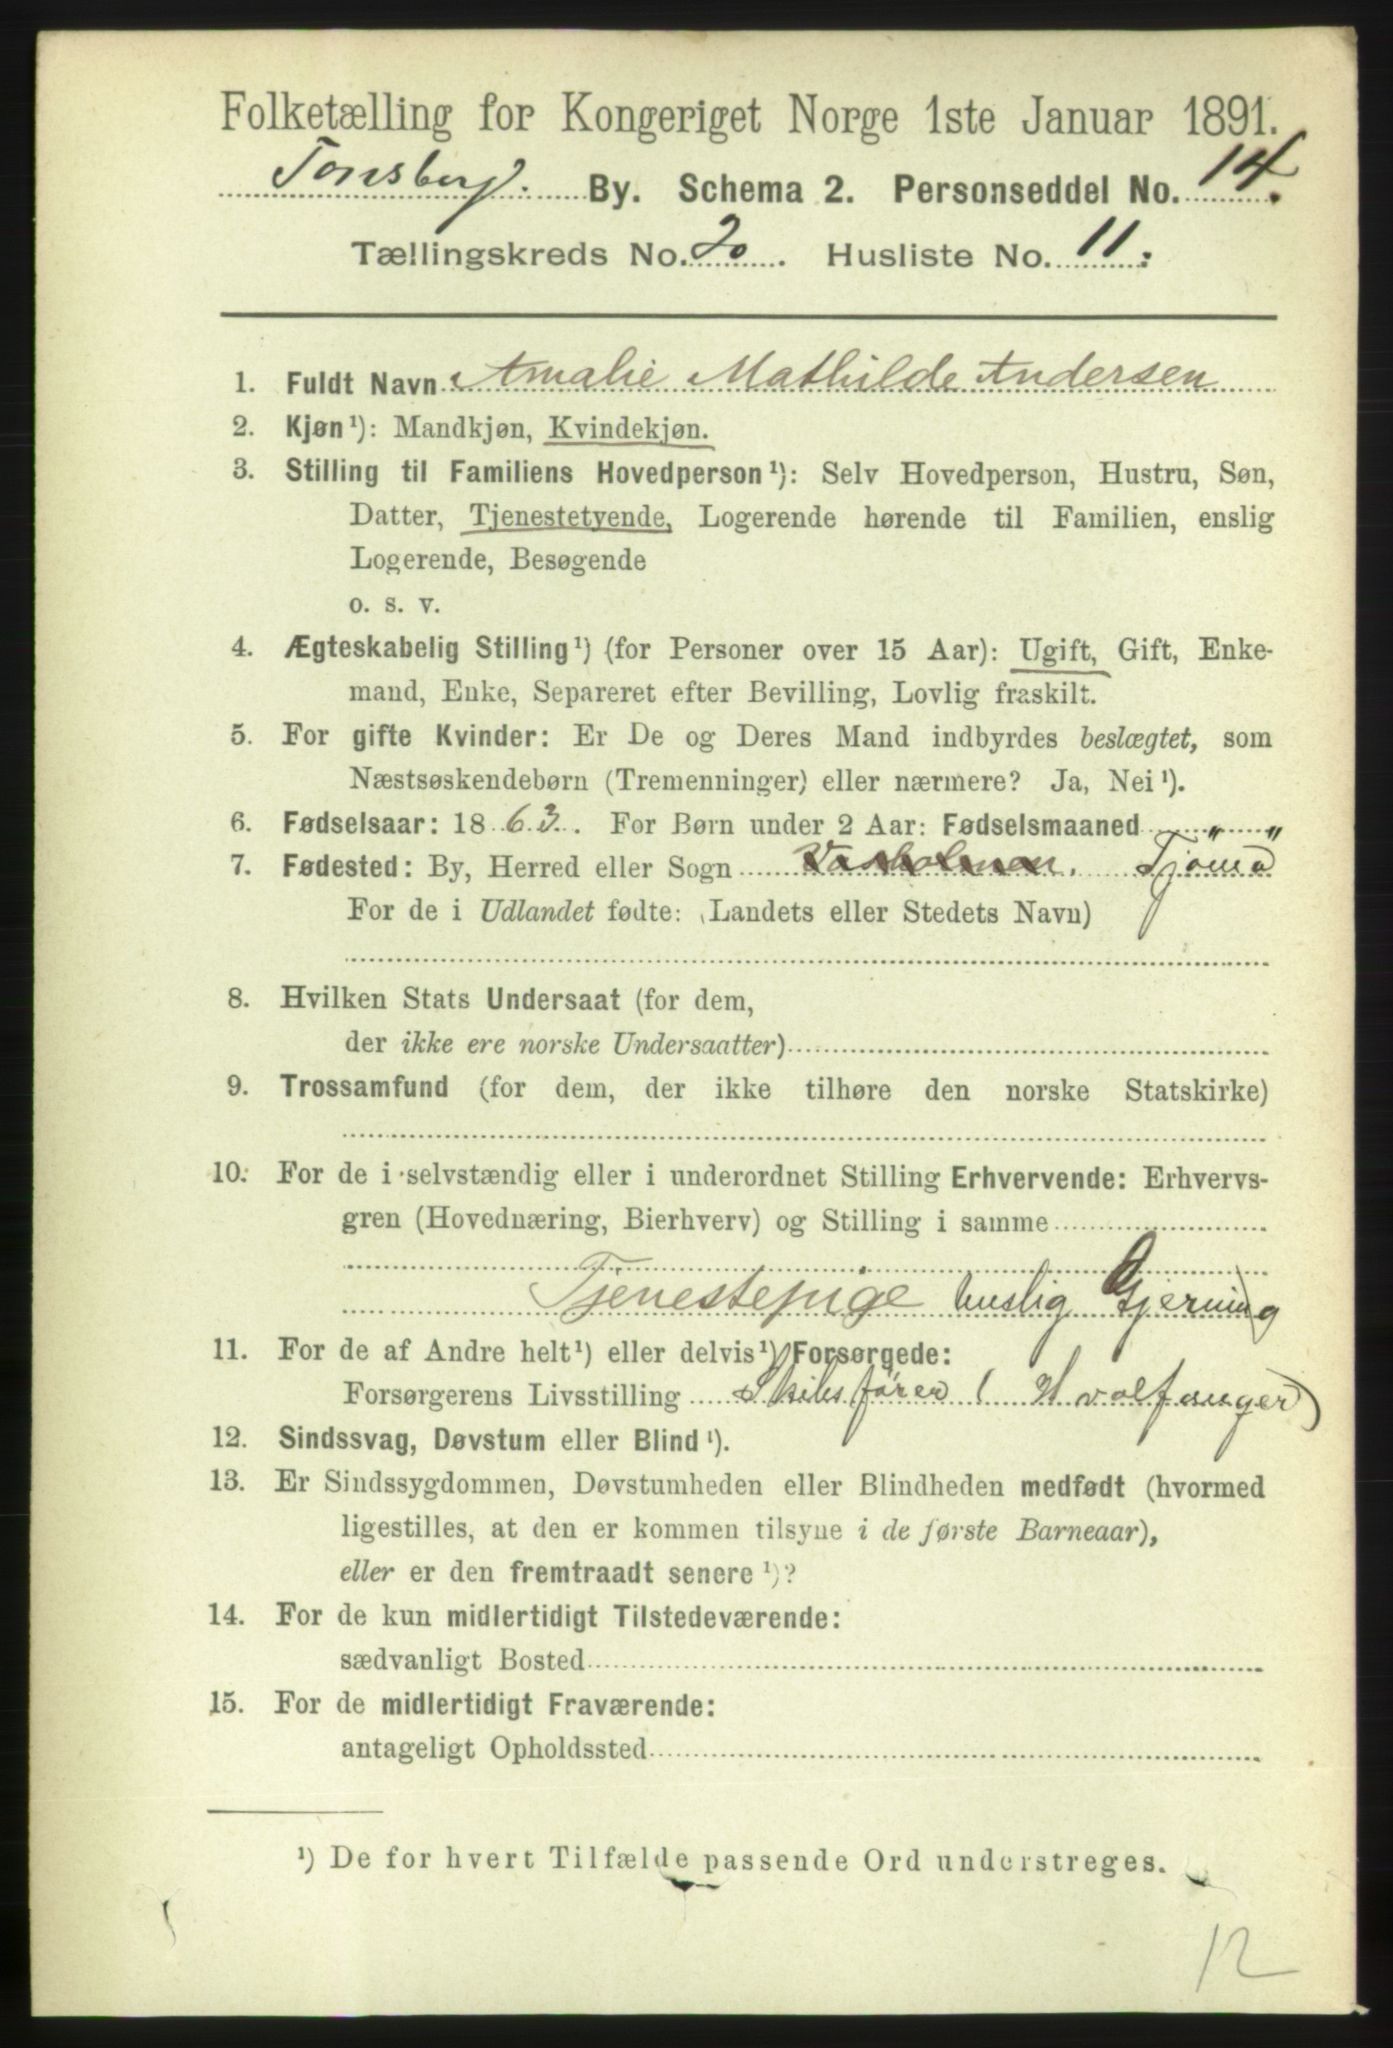 Folketælling for Kongeriget Norge 1ste Januar 1891.
Tønsberg. By. Schema 2. Personseddel No. 14.
Tællingskreds No. 20. Husliste No. 11.
1. Fuldt Navn Amalie Mathilde Andersen
2. Kjøn¹): Mandkjøn, Kvindekjøn.
3. Stilling til Familiens Hovedperson¹): Selv Hovedperson, Hustru, Søn,
Datter, Tjenestetyende, Logerende hørende til Familien, enslig
Logerende, Besøgende
o. s. v.
4. Ægteskabelig Stilling¹) (for Personer over 15 Aar): Ugift, Gift, Enke-
mand, Enke, Separeret efter Bevilling, Lovlig fraskilt.
5. For gifte Kvinder: Er De og Deres Mand indbyrdes beslægtet, som
Næstsøskendebørn (Tremenninger) eller nærmere? Ja, Nei¹).
6. Fødselsaar: 1863. For Børn under 2 Aar: Fødselsmaaned " "
7. Fødested: By, Herred eller Sogn Tjømø
For de i Udlandet fødte: (Landets eller Stedets Navn)
8. Hvilken Stats Undersaat (for dem,
der ikke ere norske Undersaatter)
9. Trossamfund (for dem, der ikke tilhøre den norske Statskirke)
10. For de i selvstændig eller i underordnet Stilling Erhvervende: Erhvervs-
gren (Hovednæring, Bierhverv) og Stilling i samme
Tjenestepige huslig Gjerning
11. For de af Andre helt¹) eller delvis¹) Forsørgede:
Forsørgerens Livsstilling Skibsfører (Hvalfanger)
12. Sindssvag, Døvstum eller Blind¹).
13. Er Sindssygdommen, Døvstumheden eller Blindheden medfødt (hvormed
ligestilles, at den er kommen tilsyne i de første Barneaar),
eller er den fremtraadt senere¹)?
14. For de kun midlertidigt Tilstedeværende:
sædvanligt Bosted
15. For de midlertidigt Fraværende:
antageligt Opholdssted
¹) De for hvert Tilfælde passende Ord understreges.
12